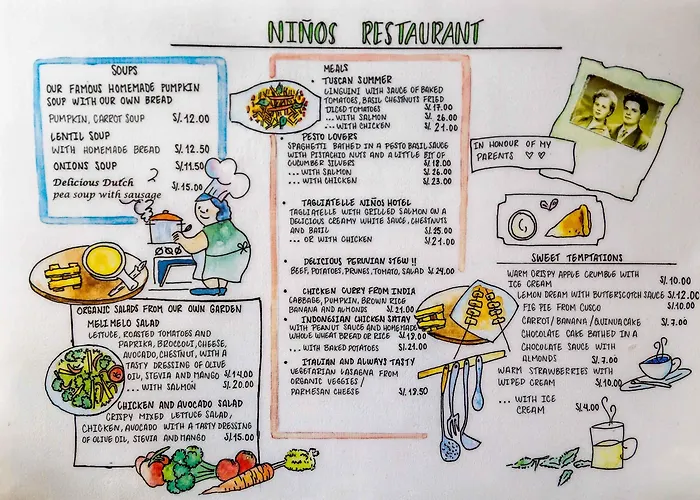 NIÑOS RESTAURANT
SOUPS
OUR FAMOUS HOMEMADE PUMPKIN
SOUP WITH OUR OWN BREAD
PUMPKIN, CARROT SOUP S/.12.00
LENTIL SOUP
WITH HOMEMADE BREAD S/.12.50
ONIONS SOUP S/.11.50
Delicious Dutch
pea soup with sausage S/.15.00
ORGANIC SALADS FROM OUR OWN GARDEN
MELI MELO SALAD
LETTUCE, ROASTED TOMATOES AND
PAPRIKA, BROCCOLI, CHEESE,
AVOCADO, CHESTNUT, WITH A
TASTY DRESSING OF OLIVE
OIL, STEVIA AND MANGO S/.19.00
... WITH SALMON S/. 20.00
CHICKEN AND AVOCADO SALAD
CRISPY MIXED LETTUCE SALAD,
CHICKEN, AVOCADO WITH A TASTY DRESSING
OF OLIVE OIL, STEVIA AND MANGO S/.15.00
MEALS
• TUSCAN SUMMER
LINGUINI WITH SAUCE OF BAKED
TOMATOES, BASIL CHESTNUTS FRIED
DICED TOMATOES S/.17.00
... WITH SALMON S/. 26.00
... WITH CHICKEN S/. 21.00
• PESTO LOVERS
SPAGHETTI BATHED IN A PESTO BASIL SAUCE
WITH PISTACHIO NUTS AND A LITTLE BIT OF
CUCUMBER SLIVERS S/.18.00
... WITH SALMON S/.26.00
... WITH CHICKEN S/. 23.00
• TAGLIATELLE NIÑOS HOTEL
TAGLIATELLE WITH GRILLED SALMON ON A
DELICIOUS CREAMY WHITE SAUCE, CHESTNUTS
AND BASIL S/.25.00
... OR WITH CHICKEN S/.21.00
• DELICIOUS PERUVIAN STEW !!
BEEF, POTATOES, PRUNES, TOMATO, SALAD S/.24.00
• CHICKEN CURRY FROM INDIA
CABBAGE, PUMPKIN, BROWN RICE
BANANA AND ALMONDS S/.21.00
• INDONESIAN CHICKEN SATAY
WITH PEANUT SAUCE AND HOMEMADE
WHOLE WHEAT BREAD OR RICE S/.18.00
... WITH BAKED POTATOES S/.21.00
• ITALIAN AND ALWAYS TASTY
VEGETARIAN LASAGNA FROM
ORGANIC VEGGIES/
PARMESAN CHEESE S/.18.50
IN HONOUR OF MY
PARENTS ♡ ♡
SWEET TEMPTATIONS
WARM CRISPY APPLE CRUMBLE WITH
ICE CREAM S/.10.00
LEMON DREAM WITH BUTTERSCOTCH SAUCE S/.12.00
FIG PIE FROM CUSCO S/.10.00
CARROT / BANANA / QUINUA CAKE S/.7.00
CHOCOLATE CAKE BATHED IN A
CHOCOLATE SAUCE WITH
ALMONDS S/.7.00
WARM STRAWBERRIES WITH
WIPED CREAM S/.10.00
... WITH ICE
CREAM S/.4.00